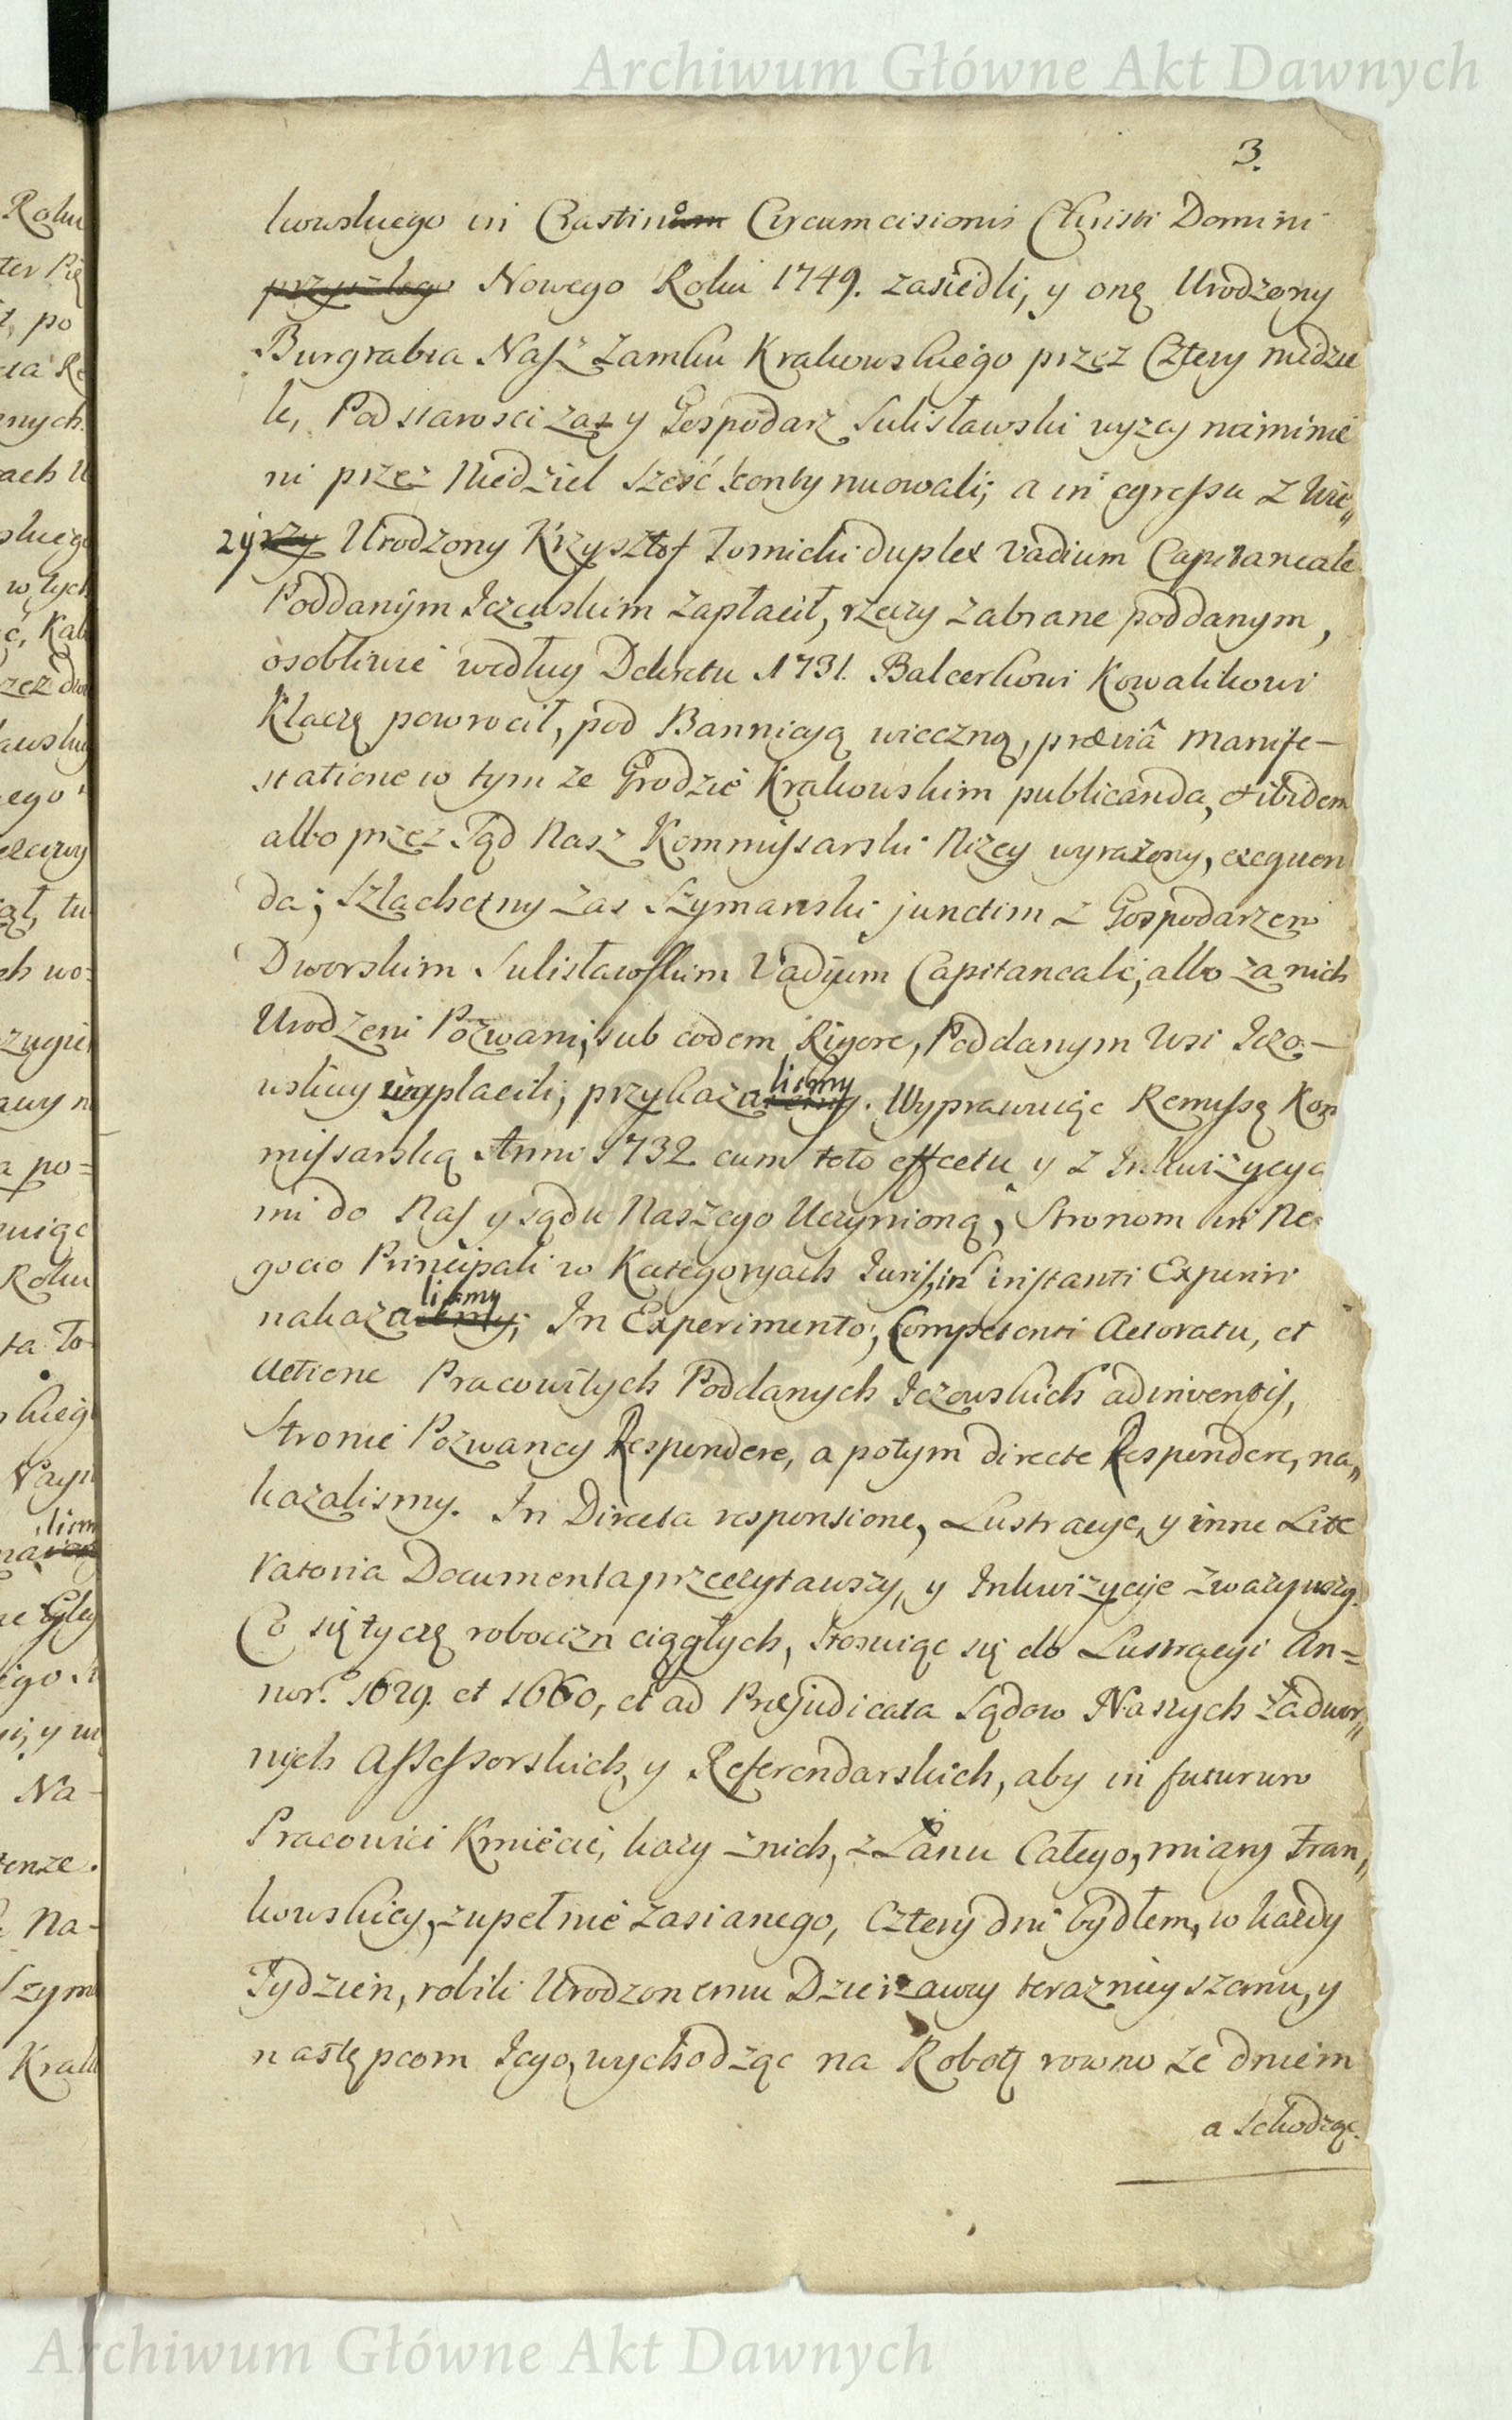 Archiwum Główne Akt Dawnych
3.
kowskiego in Crastino Circumcisionis Christi Domini
przyszłego Nowego Roku 1749. zasiedli, y onę Urodzony
Burgrabia Nasz Zamku Krakowskiego przez Cztery niedzie
le, Podstarosci zas y Gospodarz Sulisławski wyzey namienie
ni przez Niedziel Sześć kontynuowali; a in egressu z Wie„
zy Urodzony Krzysztof Tomicki duplex Vadium Capitaneale
Poddanym Jczewskim zapłacił, rzeczy zabrane poddanym,
osobliwie według Dekretu 1731. Balcerkowi Kowalikowi
Klaczę powrocił, pod Bannicyą wieczną, præviâ manife-
statione w tym ze Grodzie Krakowskim publicanda, et ibidem
albo przez Sąd Nasz Kommissarski Nizey wyrazony, exequen
da; Szlachetny zas Szymanski junctim z Gospodarzem
Dworskim Sulisławskim Vadium Capitaneale, albo za nich
Urodzeni Pozwani, sub eodem Rigore, Poddanym Wsi Jczo-
wskiey wypłacili; przykazalismy. Wyprawuiąc Remissę Kom
missarską Anni 1732 cum toto effectu y z Inkwizycya
mi do Nas y sądu Naszego Uczynioną, Stronom in Ne
gocio Principali w Kategoryach Juris, in instanti Experiri
nakazalismy; In Experimento, Competenti Actoratu, et
Actione Pracowitych Poddanych Jczowskich adinventis,
Stronie Pozwaney Respondere, a potym directe Respondere, na„
kazalismy. In Directa responsione, Lustracye, y inne Lite
ratoria Documenta przeczytawszy, y Inkwizycye zwazywszy
Co się tycze robocizn ciągłych, stosuiąc się do Lustracyi An=
nor. 1629. et 1660, et ad Præjudicata Sądow Naszych Zadwor„
nych Assessorskich, y Referendarskich, aby in futurum
Pracowici Kmiecie, kazy z nich, z Łanu Całego, miary Fran„
kowskiey, zupełnie zasianego, Cztery dni bydłem, w kazdy
Tydzien, robili Urodzonemu Dzierzawcy teraznieyszemu, y
następcom Jego, wychodząc na Robotę rowno ze dniem
a schodząc.
Archiwum Główne Akt Dawnych